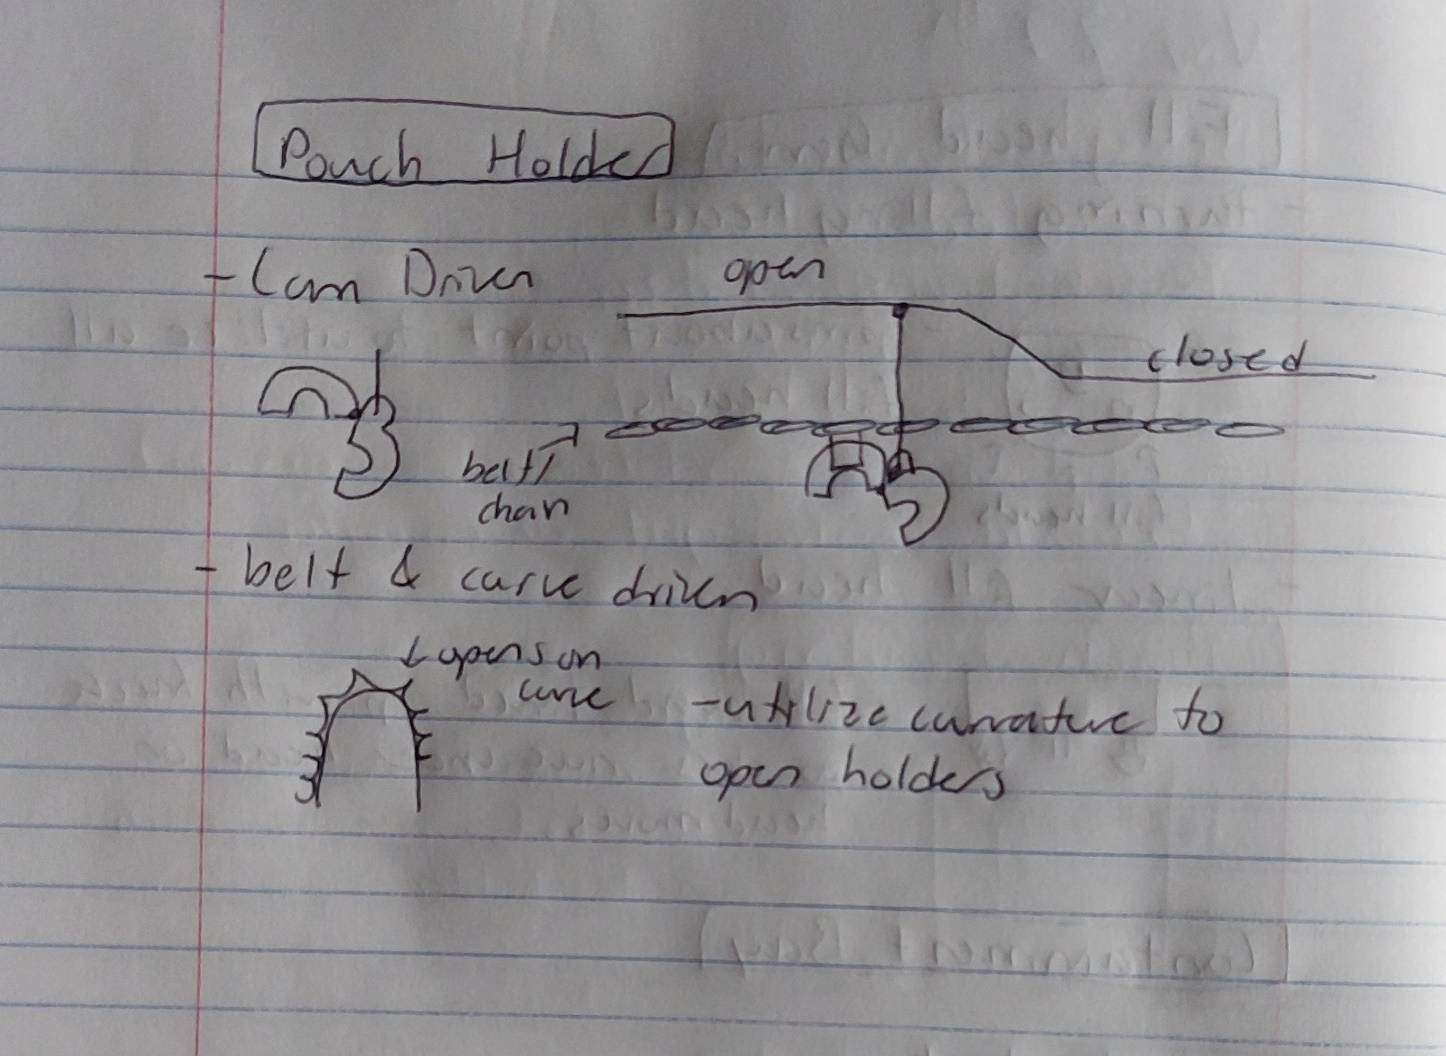 Pouch Holder
- Cam Driven
open
closed
belt/
chain
- belt & curve driven
↓ opens on
curve
- utilize curvature to
open holders